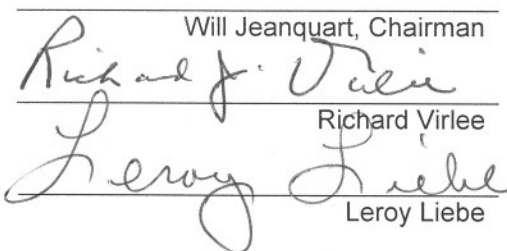 Will Jeanquart, Chairman
Richard J. Virlee
Richard Virlee
Leroy Liebe
Leroy Liebe